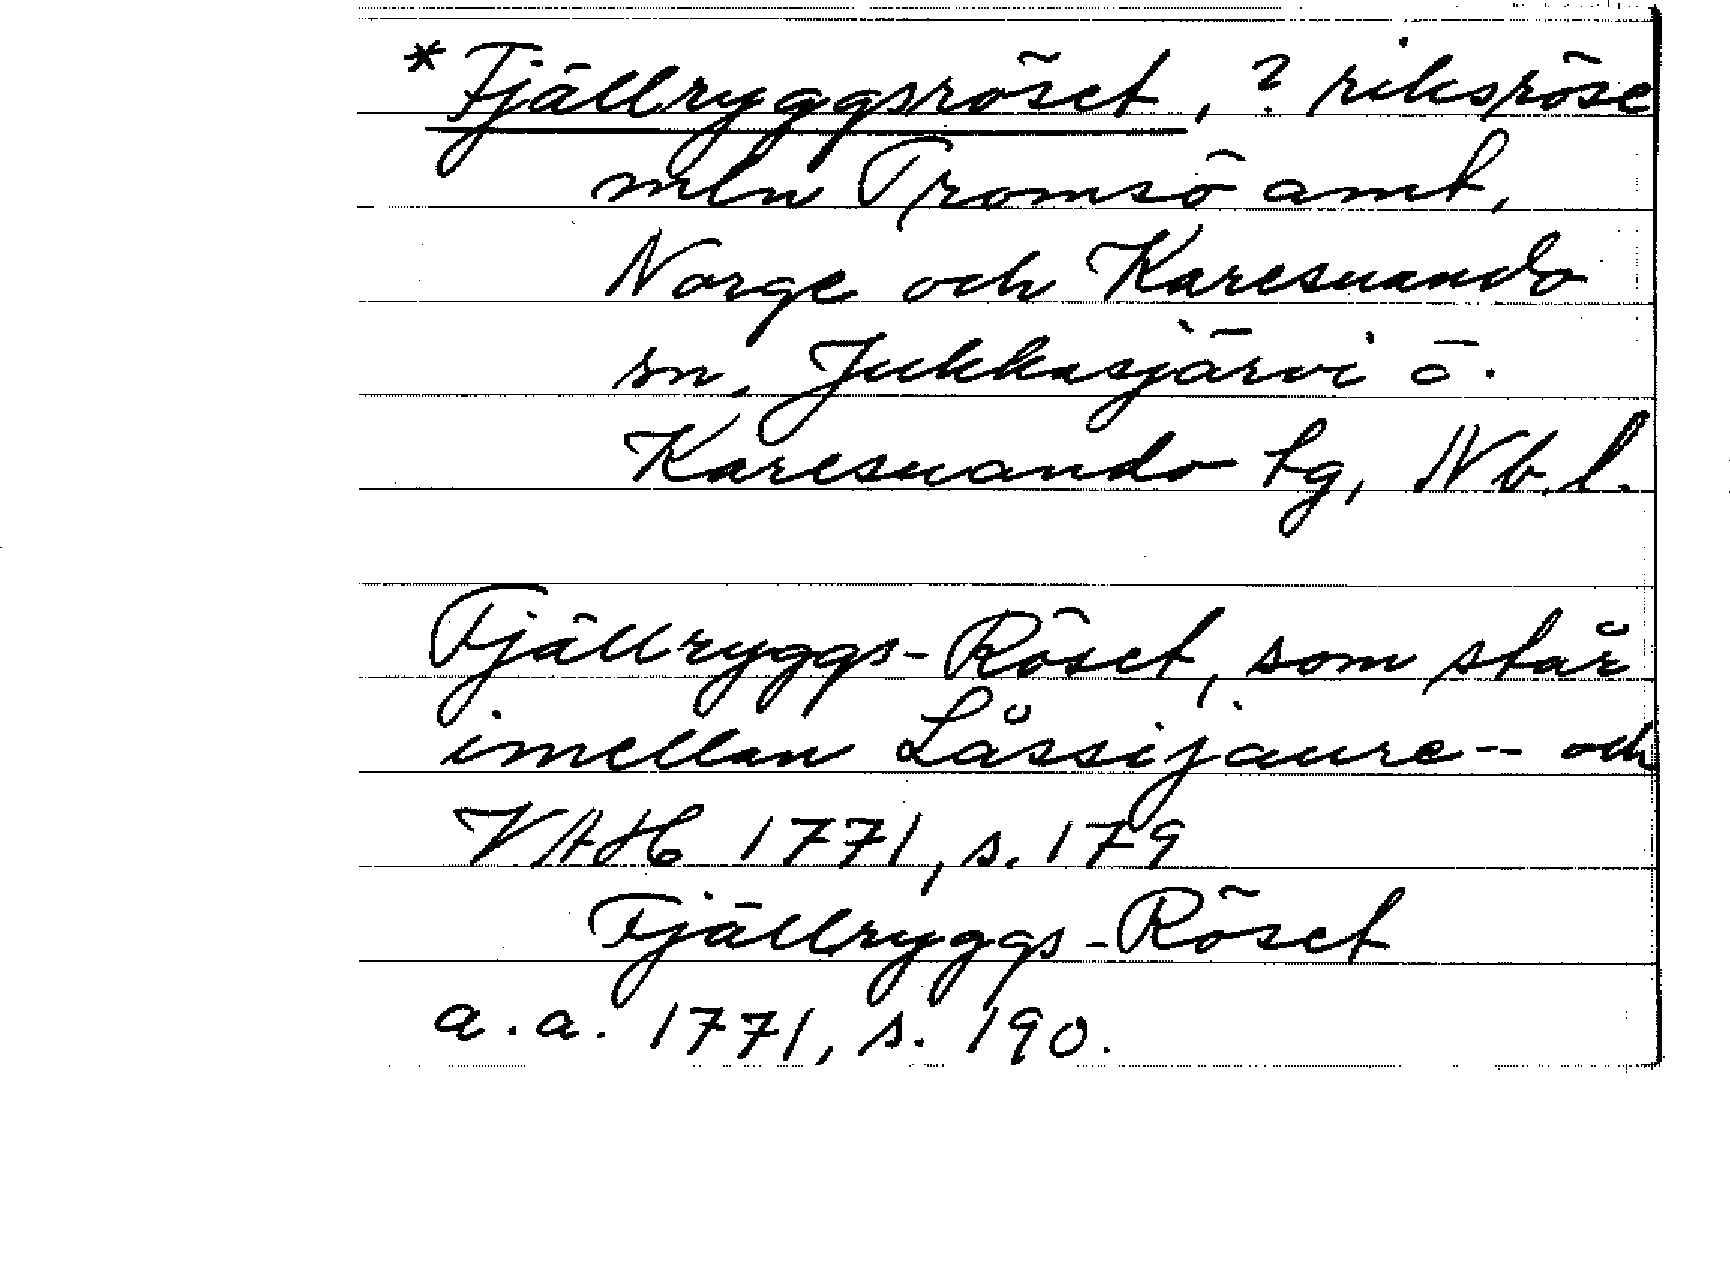 * Fjällryggsröset, ? riksröse
mln Tromsö amt,
Norge och Karesuando
sn, Jukkasjärvi o.
Karesuando tg, Nb. l.
Fjällryggs-Röset, som står
imellan Låssijaure -- och
VAH 1771, s. 179
Fjällryggs-Röset
a.a. 1771, s. 190.